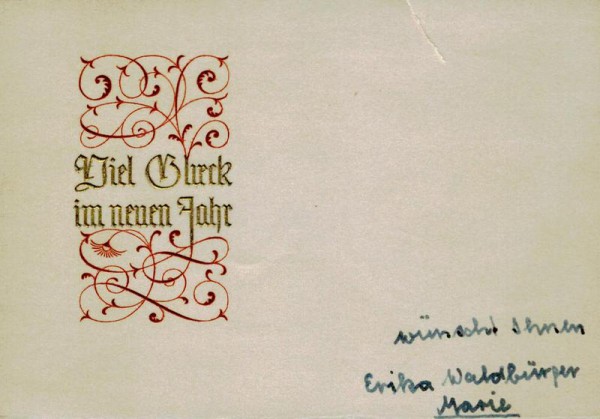 Viel Glück
im neuen Jahr
wünscht Ihnen
Erika Waldbürger
Marie